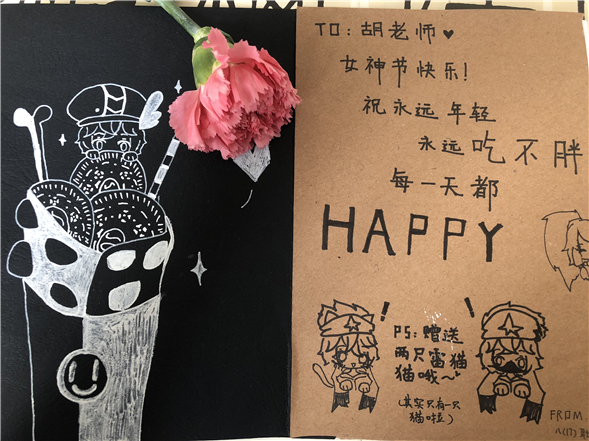 TO: 胡老师♥
女神节快乐!
祝永远年轻
永远吃不胖
每一天都
HAPPY
! !
PS: 赠送
两只雷猫
猫哦~
(其实只有一只
猫啦)
FROM.
八(17)